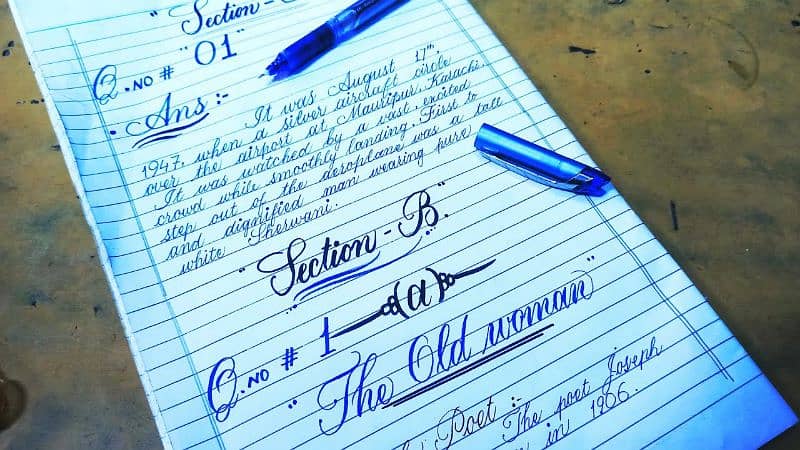 "Section -
Q. NO # "01"
Ans :-
It was August 17th,
1947, when a silver aircraft circle
over the airport at Mauripur, Karachi.
It was watched by a vast, excited
crowd while smoothly landing. First to
step out of the aeroplane was a tall
and dignified man wearing pure
white Sherwani.
"Section - B"
Q. NO # 1 (a)
"The Old woman"
Poet :-
The poet Joseph
in 1906.